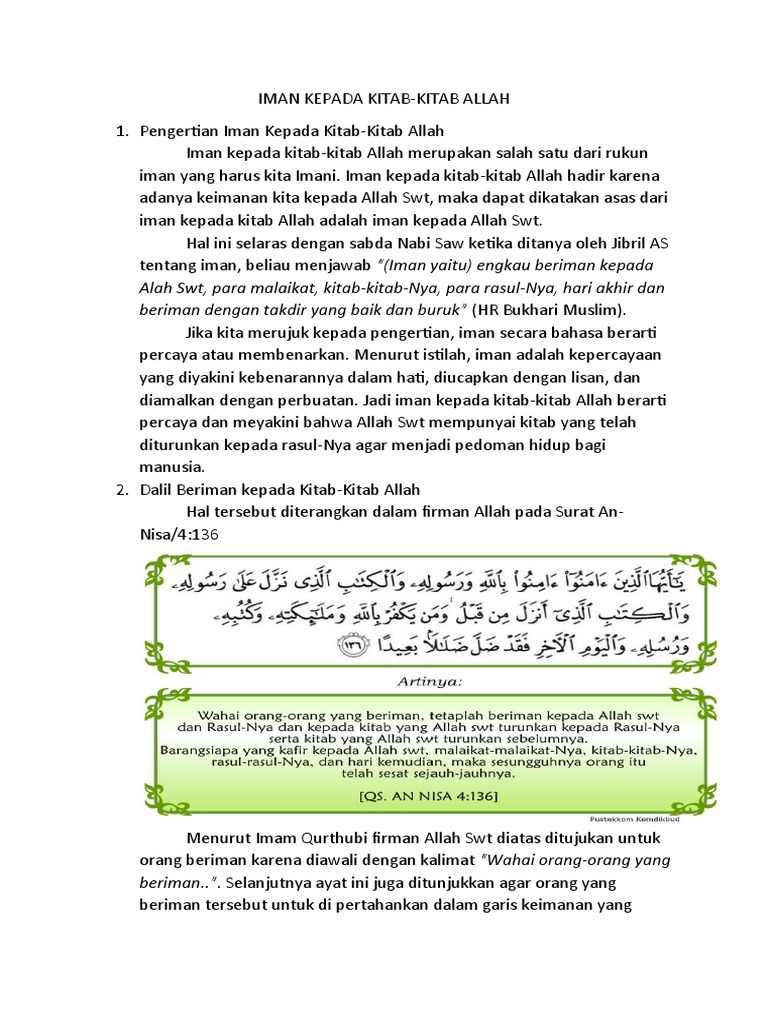 IMAN KEPADA KITAB-KITAB ALLAH
1. Pengertian Iman Kepada Kitab-Kitab Allah
Iman kepada kitab-kitab Allah merupakan salah satu dari rukun
iman yang harus kita Imani. Iman kepada kitab-kitab Allah hadir karena
adanya keimanan kita kepada Allah Swt, maka dapat dikatakan asas dari
iman kepada kitab Allah adalah iman kepada Allah Swt.
Hal ini selaras dengan sabda Nabi Saw ketika ditanya oleh Jibril AS
tentang iman, beliau menjawab “(Iman yaitu) engkau beriman kepada
Alah Swt, para malaikat, kitab-kitab-Nya, para rasul-Nya, hari akhir dan
beriman dengan takdir yang baik dan buruk” (HR Bukhari Muslim).
Jika kita merujuk kepada pengertian, iman secara bahasa berarti
percaya atau membenarkan. Menurut istilah, iman adalah kepercayaan
yang diyakini kebenarannya dalam hati, diucapkan dengan lisan, dan
diamalkan dengan perbuatan. Jadi iman kepada kitab-kitab Allah berarti
percaya dan meyakini bahwa Allah Swt mempunyai kitab yang telah
diturunkan kepada rasul-Nya agar menjadi pedoman hidup bagi
manusia.
2. Dalil Beriman kepada Kitab-Kitab Allah
Hal tersebut diterangkan dalam firman Allah pada Surat An-
Nisa/4:136
يَٰٓأَيُّهَا ٱلَّذِينَ ءَامَنُوٓا۟ ءَامِنُوا۟ بِٱللَّهِ وَرَسُولِهِۦ وَٱلْكِتَٰبِ ٱلَّذِى نَزَّلَ عَلَىٰ رَسُولِهِۦ
وَٱلْكِتَٰبِ ٱلَّذِىٓ أَنزَلَ مِن قَبْلُ ۚ وَمَن يَكْفُرْ بِٱللَّهِ وَمَلَٰٓئِكَتِهِۦ وَكُتُبِهِۦ
وَرُسُلِهِۦ وَٱلْيَوْمِ ٱلْـَٔاخِرِ فَقَدْ ضَلَّ ضَلَٰلًۢا بَعِيدًا ١٣٦
Artinya:
Wahai orang-orang yang beriman, tetaplah beriman kepada Allah swt
dan Rasul-Nya dan kepada kitab yang Allah swt turunkan kepada Rasul-Nya
serta kitab yang Allah swt turunkan sebelumnya.
Barangsiapa yang kafir kepada Allah swt, malaikat-malaikat-Nya, kitab-kitab-Nya,
rasul-rasul-Nya, dan hari kemudian, maka sesungguhnya orang itu
telah sesat sejauh-jauhnya.
[QS. AN NISA 4:136]
Pustekkom Kemdikbud
Menurut Imam Qurthubi firman Allah Swt diatas ditujukan untuk
orang beriman karena diawali dengan kalimat “Wahai orang-orang yang
beriman..”. Selanjutnya ayat ini juga ditunjukkan agar orang yang
beriman tersebut untuk di pertahankan dalam garis keimanan yang